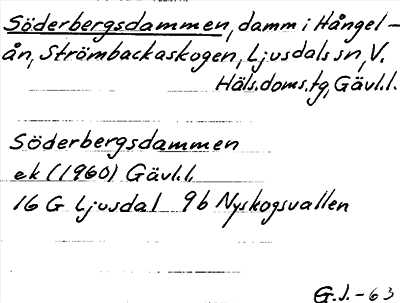 Söderbergsdammen, damm i Hångel-
ån, Strömbackaskogen, Ljusdals sn, V.
Häls.doms.tg, Gävl.l.
Söderbergsdammen
ek (1960) Gävl.l.
16 G Ljusdal 9b Nyskogsvallen
G.J.-63